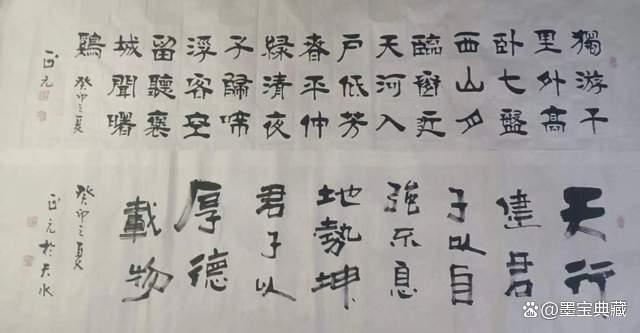 獨游千
里外高
卧七盤
西山月
臨窗近
天河入
户低芳
春平仲
緑清夜
子歸啼
浮客空
留聽褒
城聞曙
鷄
癸卯之夏
正元
天行
健君
子以自
強不息
地勢坤
君子以
厚德
載物
癸卯之夏
正元於天水
墨宝典藏